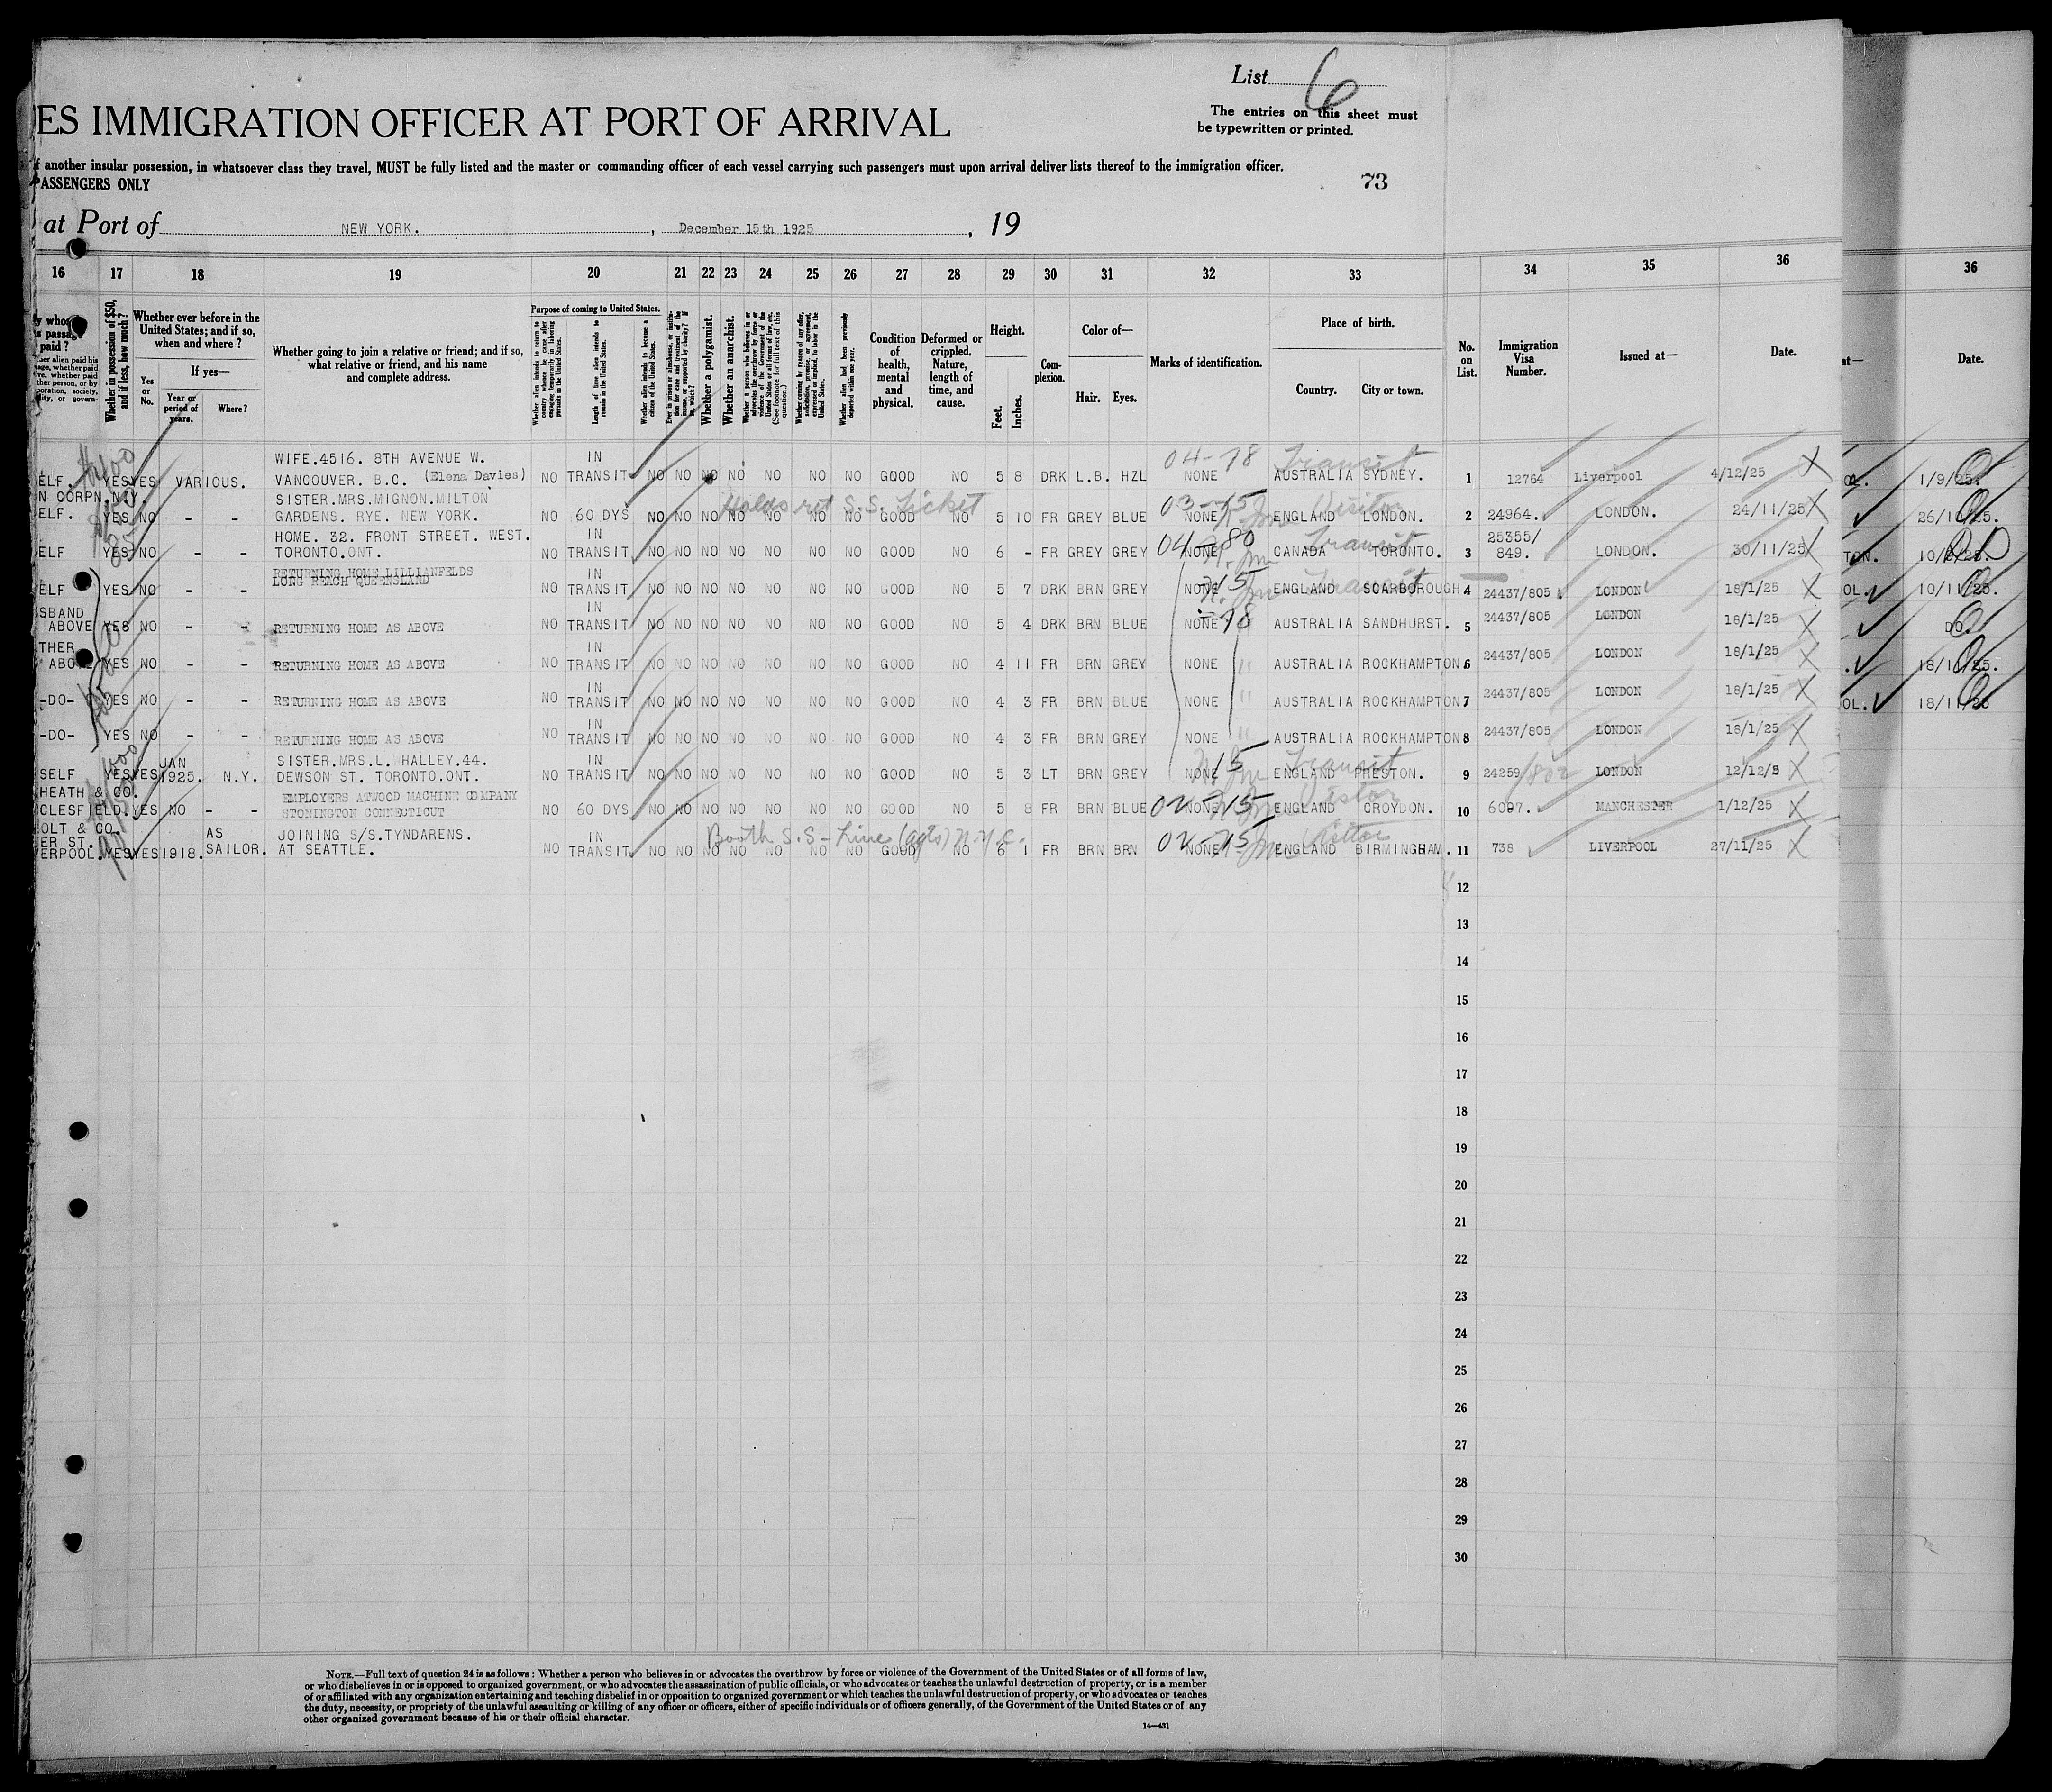 List 6
ES IMMIGRATION OFFICER AT PORT OF ARRIVAL
The entries on this sheet must
be typewritten or printed.
f another insular possession, in whatsoever class they travel, MUST be fully listed and the master or commanding officer of each vessel carrying such passengers must upon arrival deliver lists thereof to the immigration officer.
PASSENGERS ONLY
73
at Port of NEW YORK. , December 15th 1925 , 19
16 17 18 19 20 21 22 23 24 25 26 27 28 29 30 31 32 33 34 35 36 36
Whether in possession of $50, and if less, how much?
Whether ever before in the United States; and if so, when and where?
If yes—
Yes or No.
Year or period of years.
Where?
Whether going to join a relative or friend; and if so, what relative or friend, and his name and complete address.
Purpose of coming to United States.
Length of time alien intends to remain in the United States.
Whether alien intends to become a citizen of the United States.
Whether a polygamist.
Whether an anarchist.
Condition of health, mental and physical.
Deformed or crippled. Nature, length of time, and cause.
Height.
Feet.
Inches.
Complexion.
Color of—
Hair. Eyes.
Marks of identification.
Place of birth.
Country. City or town.
No. on List.
Immigration Visa Number.
Issued at—
Date.
at—
Date.
WIFE.4516. 8TH AVENUE W. IN 04-78 Transit
ELF. YES YES VARIOUS. VANCOUVER. B.C. (Elena Davies) NO TRANSIT NO NO NO NO NO NO NO GOOD NO 5 8 DRK L.B. HZL NONE AUSTRALIA SYDNEY. 1 12764 Liverpool 4/12/25 1/9/25.
N CORPN.N.Y. SISTER.MRS.MIGNON.MILTON Holds ret S.S. Ticket 03-15 Visitor
ELF. YES NO - - GARDENS. RYE. NEW YORK. NO 60 DYS NO NO NO NO NO NO NO GOOD NO 5 10 FR GREY BLUE NONE ENGLAND LONDON. 2 24964. LONDON. 24/11/25 26/10/25.
HOME. 32. FRONT STREET. WEST. IN 04-80 Transit 25355/
ELF YES NO - - TORONTO.ONT. NO TRANSIT NO NO NO NO NO NO NO GOOD NO 6 - FR GREY GREY NONE CANADA TORONTO. 3 849. LONDON. 30/11/25 TON.
RETURNING HOME LILLIANFELDS IN -15 Transit
ELF YES NO - - LONG REACH QUEENSLAND NO TRANSIT NO NO NO NO NO NO NO GOOD NO 5 7 DRK BRN GREY NONE ENGLAND SCARBOROUGH 4 24437/805 LONDON 18/1/25 OL. 10/11/25.
SBAND IN -78
ABOVE YES NO - - RETURNING HOME AS ABOVE NO TRANSIT NO NO NO NO NO NO NO GOOD NO 5 4 DRK BRN BLUE NONE " AUSTRALIA SANDHURST. 5 24437/805 LONDON 18/1/25 DO.
THER IN
ABOVE YES NO - - RETURNING HOME AS ABOVE NO TRANSIT NO NO NO NO NO NO NO GOOD NO 4 11 FR BRN GREY NONE " AUSTRALIA ROCKHAMPTON 6 24437/805 LONDON 18/1/25 18/11/25.
IN
-DO- YES NO - - RETURNING HOME AS ABOVE NO TRANSIT NO NO NO NO NO NO NO GOOD NO 4 3 FR BRN BLUE NONE " AUSTRALIA ROCKHAMPTON 7 24437/805 LONDON 18/1/25 OL. 18/11/25
IN
-DO- YES NO - - RETURNING HOME AS ABOVE NO TRANSIT NO NO NO NO NO NO NO GOOD NO 4 3 FR BRN GREY NONE " AUSTRALIA ROCKHAMPTON 8 24437/805 LONDON 18/1/25
JAN SISTER.MRS.L.WHALLEY.44. IN 15 Transit
SELF YES YES 1925. N.Y. DEWSON ST. TORONTO.ONT. NO TRANSIT NO NO NO NO NO NO NO GOOD NO 5 3 LT BRN GREY NONE ENGLAND PRESTON. 9 24259/802 LONDON 12/12/5
HEATH & CO. EMPLOYERS ATWOOD MACHINE COMPANY 02-15 Visitor
CLESFIELD. YES NO - - STONINGTON CONNECTICUT NO 60 DYS NO NO NO NO NO NO NO GOOD NO 5 8 FR BRN BLUE NONE ENGLAND CROYDON. 10 6097. MANCHESTER 1/12/25
OLT & CO. AS JOINING S/S.TYNDARENS. IN Booth S.S-Line (agts) N.Y.C. 02-15 Visitor
ER ST.
VERPOOL. YES YES 1918. SAILOR. AT SEATTLE. NO TRANSIT NO NO NO NO NO NO NO GOOD NO 6 1 FR BRN BRN NONE ENGLAND BIRMINGHAM. 11 738 LIVERPOOL 27/11/25
12
13
14
15
16
17
18
19
20
21
22
23
24
25
26
27
28
29
30
NOTE.—Full text of question 24 is as follows: Whether a person who believes in or advocates the overthrow by force or violence of the Government of the United States or of all forms of law,
or who disbelieves in or is opposed to organized government, or who advocates the assassination of public officials, or who advocates or teaches the unlawful destruction of property, or is a member
of or affiliated with any organization entertaining and teaching disbelief in or opposition to organized government or which teaches the unlawful destruction of property, or who advocates or teaches
the duty, necessity, or propriety of the unlawful assaulting or killing of any officer or officers, either of specific individuals or of officers generally, of the Government of the United States or of any
other organized government because of his or their official character.
14—431